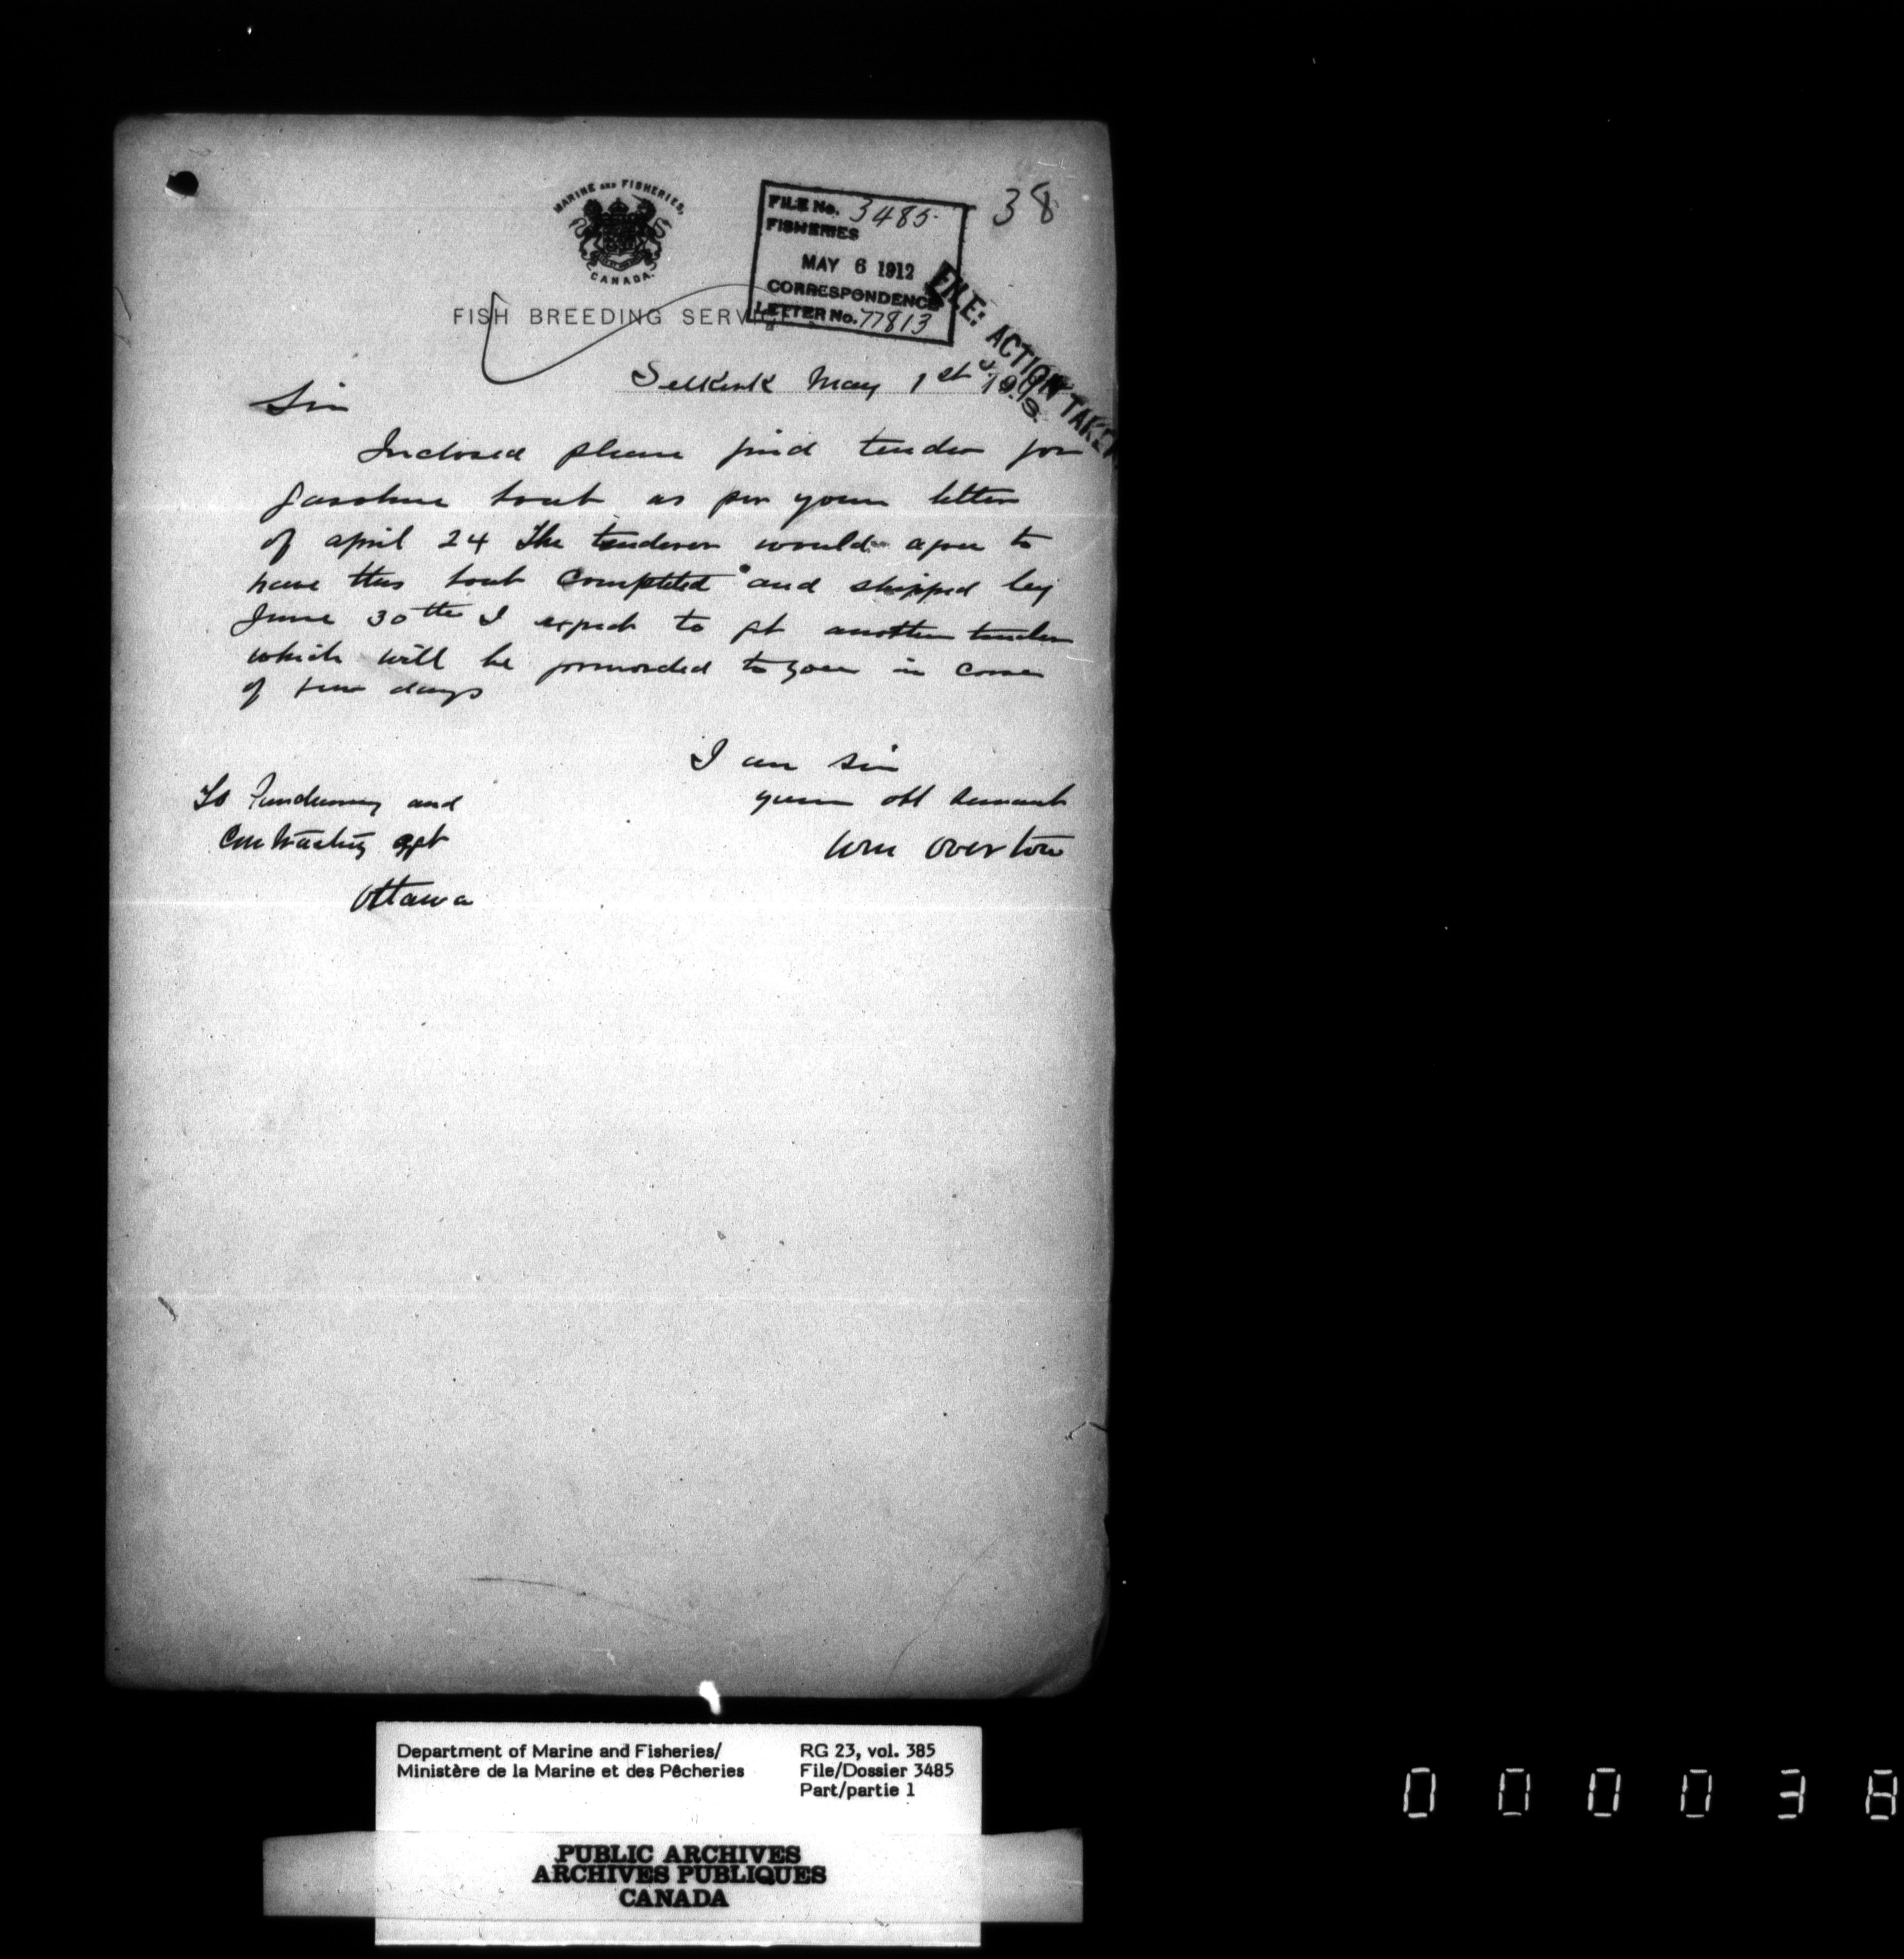 38
MARINE AND FISHERIES,
CANADA.
FILE No. 3485
FISHERIES
MAY 6 1912
CORRESPONDENCE
LETTER No. 77813
FILE: ACTION TAKEN
FISH BREEDING SERVICE
Selkirk May 1st 191
Sir
Inclosed please find tender for
gasoline boat as per your letter
of april 24 The tenderer would agree to
have this boat completed and shipped by
June 30th I expect to get another tender
which will be forwarded to you in corse
of few days
I am sir
your obt servant
Wm Overton
To Purchasing and
Contracting agt
Ottawa
Department of Marine and Fisheries/
Ministère de la Marine et des Pêcheries
RG 23, vol. 385
File/Dossier 3485
Part/partie 1
PUBLIC ARCHIVES
ARCHIVES PUBLIQUES
CANADA
000038